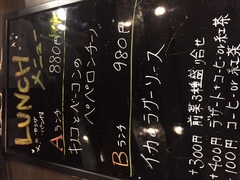 LUNCH
メニュー
Aランチ 880円
キノコとベーコンの
ペペロンチーノ
Bランチ 980円
イカのラグーソース
+300円 前菜3種盛り合せ
+400円 デザート+コーヒーor紅茶
+100円 コーヒーor紅茶